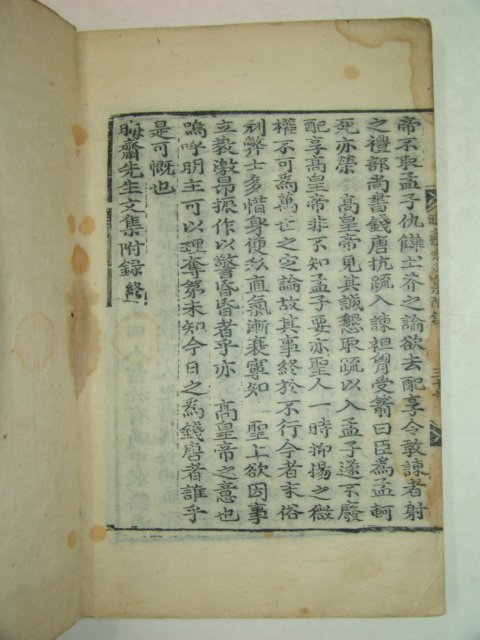 帝不取孟子仇讎土芥之論欲去配享令敢諫者射
之禮部尚書錢唐抗疏入諫袒胷受箭曰臣爲孟軻
死亦榮 高皇帝見其誠懇取疏以入孟子遂不廢
配享高皇帝非不知孟子要亦聖人一時抑揚之微
權不可爲萬亡之定論故其事終於不行今者末俗
利弊士多惜身便私直氣漸衰寧知 聖上欲因事
立敎激昻振作以警昏昏者乎亦 高皇帝之意也
嗚呼明主可以理奪第未知今日之爲錢唐者誰乎
是可慨也
晦齋先生文集附錄終